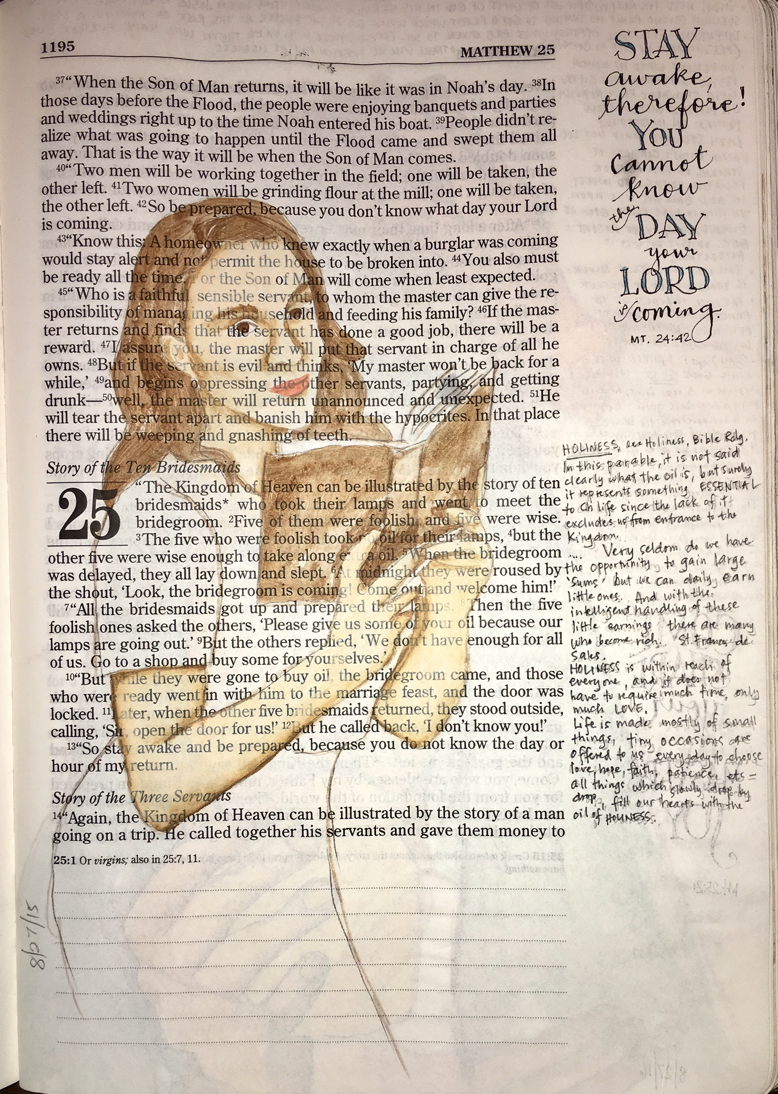 1195
MATTHEW 25
37“When the Son of Man returns, it will be like it was in Noah's day. 38In
those days before the Flood, the people were enjoying banquets and parties
and weddings right up to the time Noah entered his boat. 39People didn't re-
alize what was going to happen until the Flood came and swept them all
away. That is the way it will be when the Son of Man comes.
40“Two men will be working together in the field; one will be taken, the
other left. 41Two women will be grinding flour at the mill; one will be taken,
the other left. 42So be prepared, because you don't know what day your Lord
is coming.
43“Know this: A homeowner who knew exactly when a burglar was coming
would stay alert and not permit the house to be broken into. 44You also must
be ready all the time, for the Son of Man will come when least expected.
45“Who is a faithful, sensible servant, to whom the master can give the re-
sponsibility of managing his household and feeding his family? 46If the mas-
ter returns and finds that the servant has done a good job, there will be a
reward. 47I assure you, the master will put that servant in charge of all he
owns. 48But if the servant is evil and thinks, 'My master won't be back for a
while,' 49and begins oppressing the other servants, partying, and getting
drunk—50well, the master will return unannounced and unexpected. 51He
will tear the servant apart and banish him with the hypocrites. In that place
there will be weeping and gnashing of teeth.
Story of the Ten Bridesmaids
25 “The Kingdom of Heaven can be illustrated by the story of ten
bridesmaids* who took their lamps and went to meet the
bridegroom. 2Five of them were foolish, and five were wise.
3The five who were foolish took no oil for their lamps, 4but the
other five were wise enough to take along extra oil. 5When the bridegroom
was delayed, they all lay down and slept. 6At midnight they were roused by
the shout, 'Look, the bridegroom is coming! Come out and welcome him!'
7“All the bridesmaids got up and prepared their lamps. 8Then the five
foolish ones asked the others, 'Please give us some of your oil because our
lamps are going out.' 9But the others replied, 'We don't have enough for all
of us. Go to a shop and buy some for yourselves.'
10“But while they were gone to buy oil, the bridegroom came, and those
who were ready went in with him to the marriage feast, and the door was
locked. 11Later, when the other five bridesmaids returned, they stood outside,
calling, 'Sir, open the door for us!' 12But he called back, 'I don't know you!'
13“So stay awake and be prepared, because you do not know the day or
hour of my return.
Story of the Three Servants
14“Again, the Kingdom of Heaven can be illustrated by the story of a man
going on a trip. He called together his servants and gave them money to
25:1 Or virgins; also in 25:7, 11.
8/27/15
STAY
awake,
therefore!
YOU
cannot
know
the DAY
your
LORD
is coming.
MT. 24:42
HOLINESS, see Holiness, Bible Rdg.
In this parable, it is not said
clearly what the oil is, but surely
it represents something ESSENTIAL
to Ch life since the lack of it
excludes us from entrance to the
Kingdom.
.... Very seldom do we have
the opportunity to gain large
'sums' but we can daily earn
little ones. And with the
intelligent handling of these
little earnings there are many
who become rich. "St Francis de
Sales.
HOLINESS is within reach of
everyone, and it does not
have to require much time, only
much LOVE.
Life is made mostly of small
things, tiny occasions are
offered to us everyday to choose
love, hope, faith, patience, etc =
all things which slowly drop by
drop, fill our hearts with the
oil of HOLINESS.